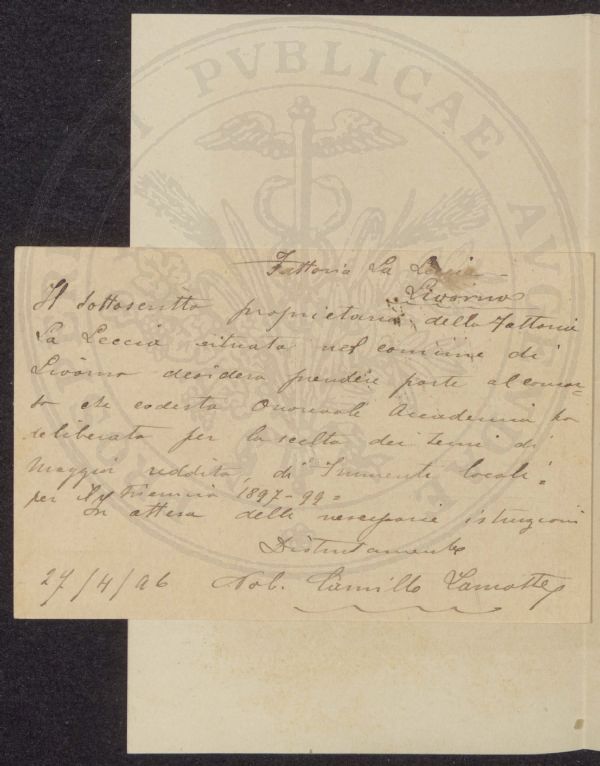 PVBLICAE
Fattoria La Leccia
Livorno
Il Sottoscritto proprietario della Fattoria
La Leccia situata nel comune di
Livorno desidera prendere parte al concor-
so che codesta Onorevole Accademia ha
deliberato per la scelta dei semi di
Maggior reddito, di Frumenti locali
per il Triennio 1897-99=
In attesa delle necessarie istruzioni
Distintamente
27/4/96 Nob. Camillo Lamotte